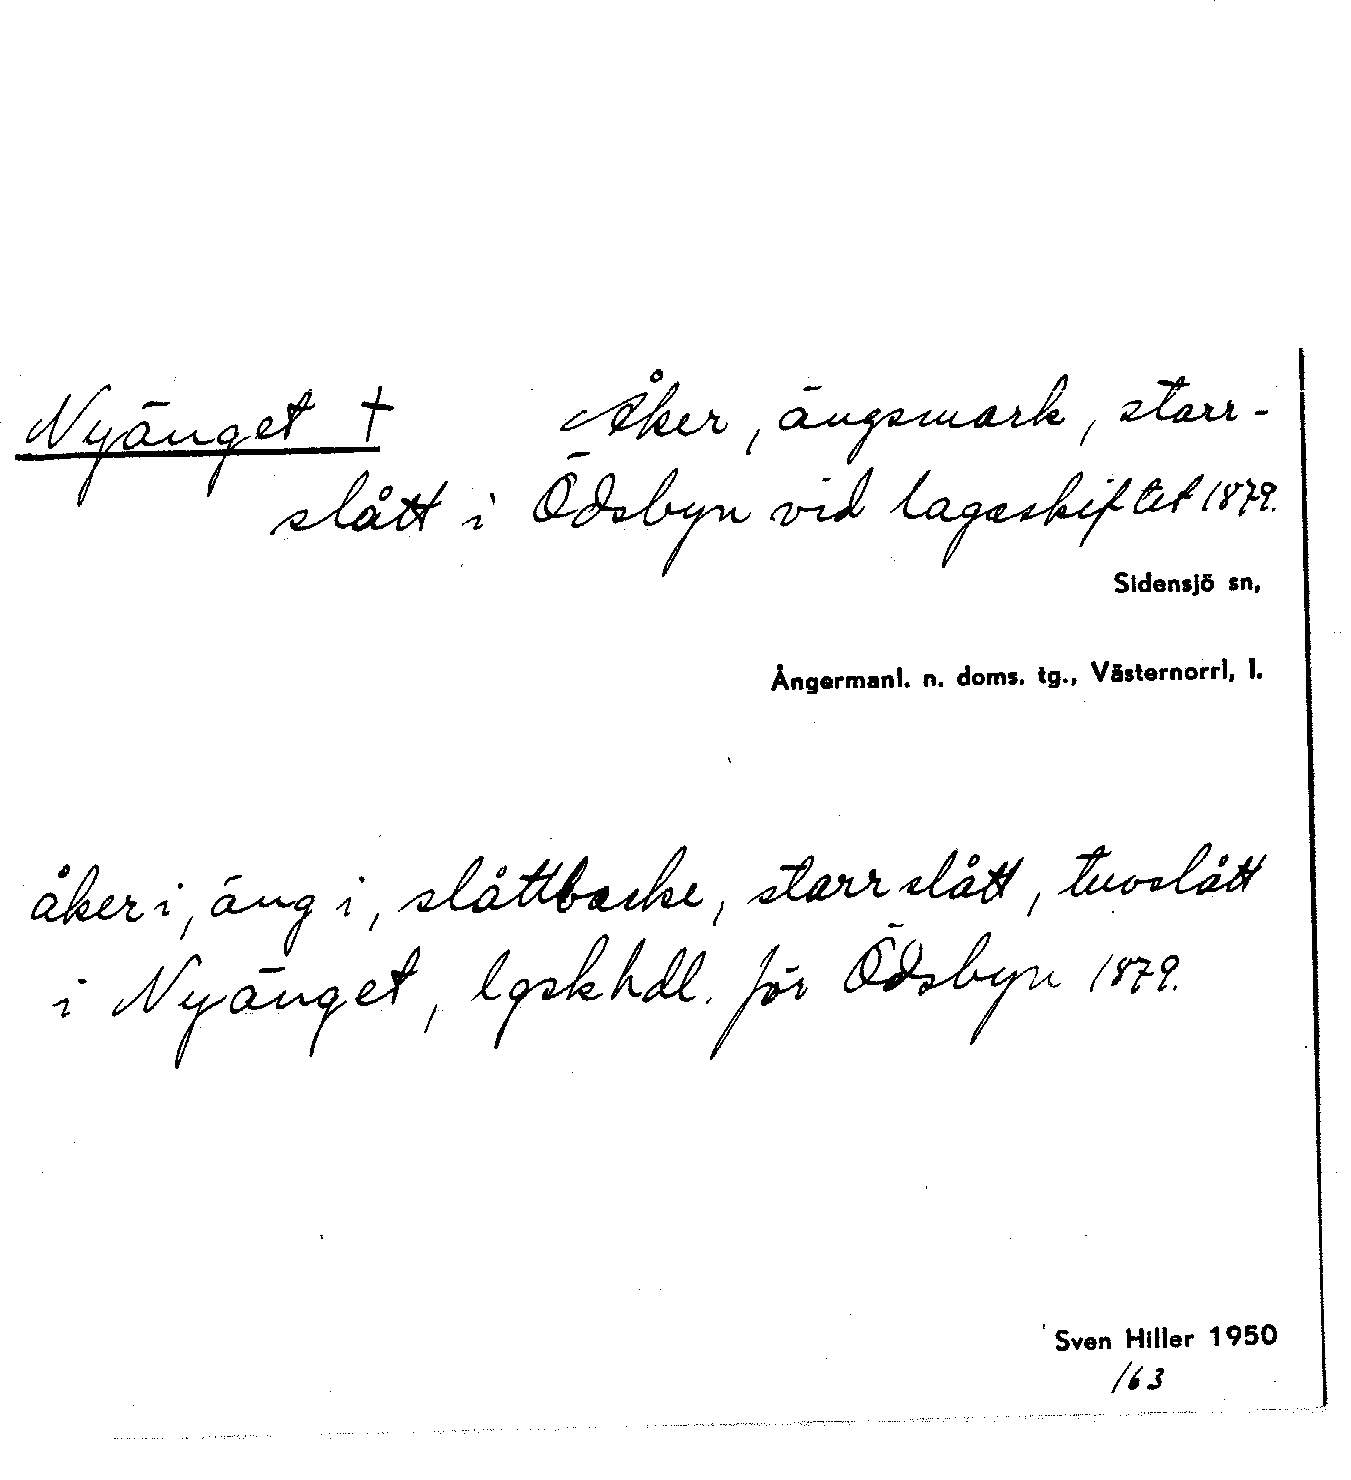 Nyänget † Åker, ängsmark, starr-
slått i Ödsbyn vid lagaskiftet 1879.
Sidensjö sn,
Ångermanl. n. doms. tg., Västernorrl, l.
åker i, äng i, slåttbacke, starrslått, tuvslått
i Nyänget, lgskhdl. för Ödsbyn 1879.
Sven Hiller 1950
163